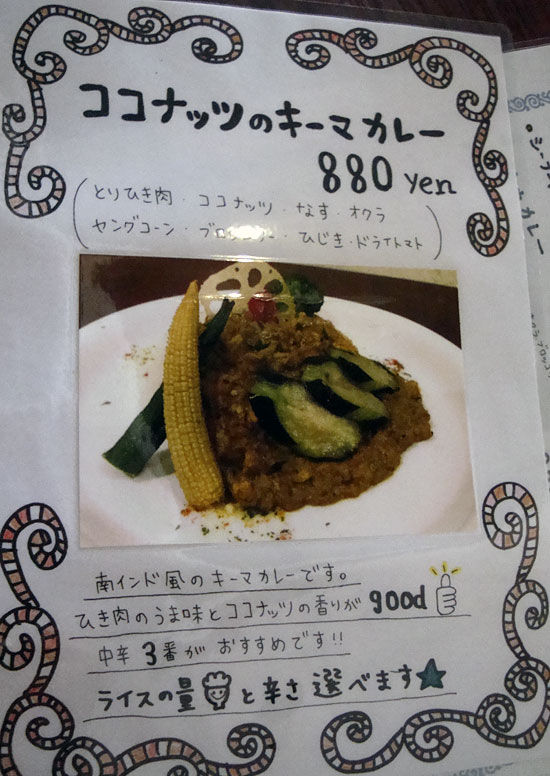 ココナッツのキーマカレー
880 yen
(とりひき肉・ココナッツ・なす・オクラ
ヤングコーン・ブロッコリー・ひじき・ドライトマト)
南インド風のキーマカレーです。
ひき肉のうま味とココナッツの香りが good
中辛 3番が おすすめです!!
ライスの量と辛さ選べます★
カレー